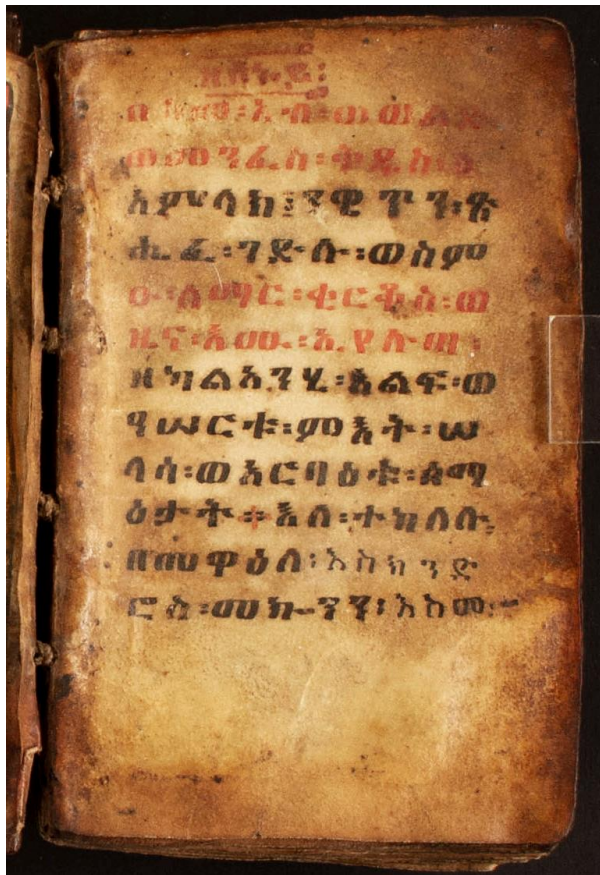 በ ስመ፡አብ፡ወወልድ
ወመንፈስ፡ቅዱስ፡፩
አምላክ፤ንዌጥን፡ጽ
ሒፈ፡ገድሉ፡ወስም
ዑ፡ለማር፡ቂርቆስ፡ወ
ዜና፡እሙ፡ኢየሉጣ፡
ዘካልአንሂ፡እልፍ፡ወ
፼ሠርቱ፡ምእት፡ሠ
ላሳ፡ወአርባዕቱ፡ሰማ
ዕታት፡እለ፡ተከለሉ፡
በመዋዕለ፡እስክንድ
ሮስ፡መኰንን፡እስመ፡